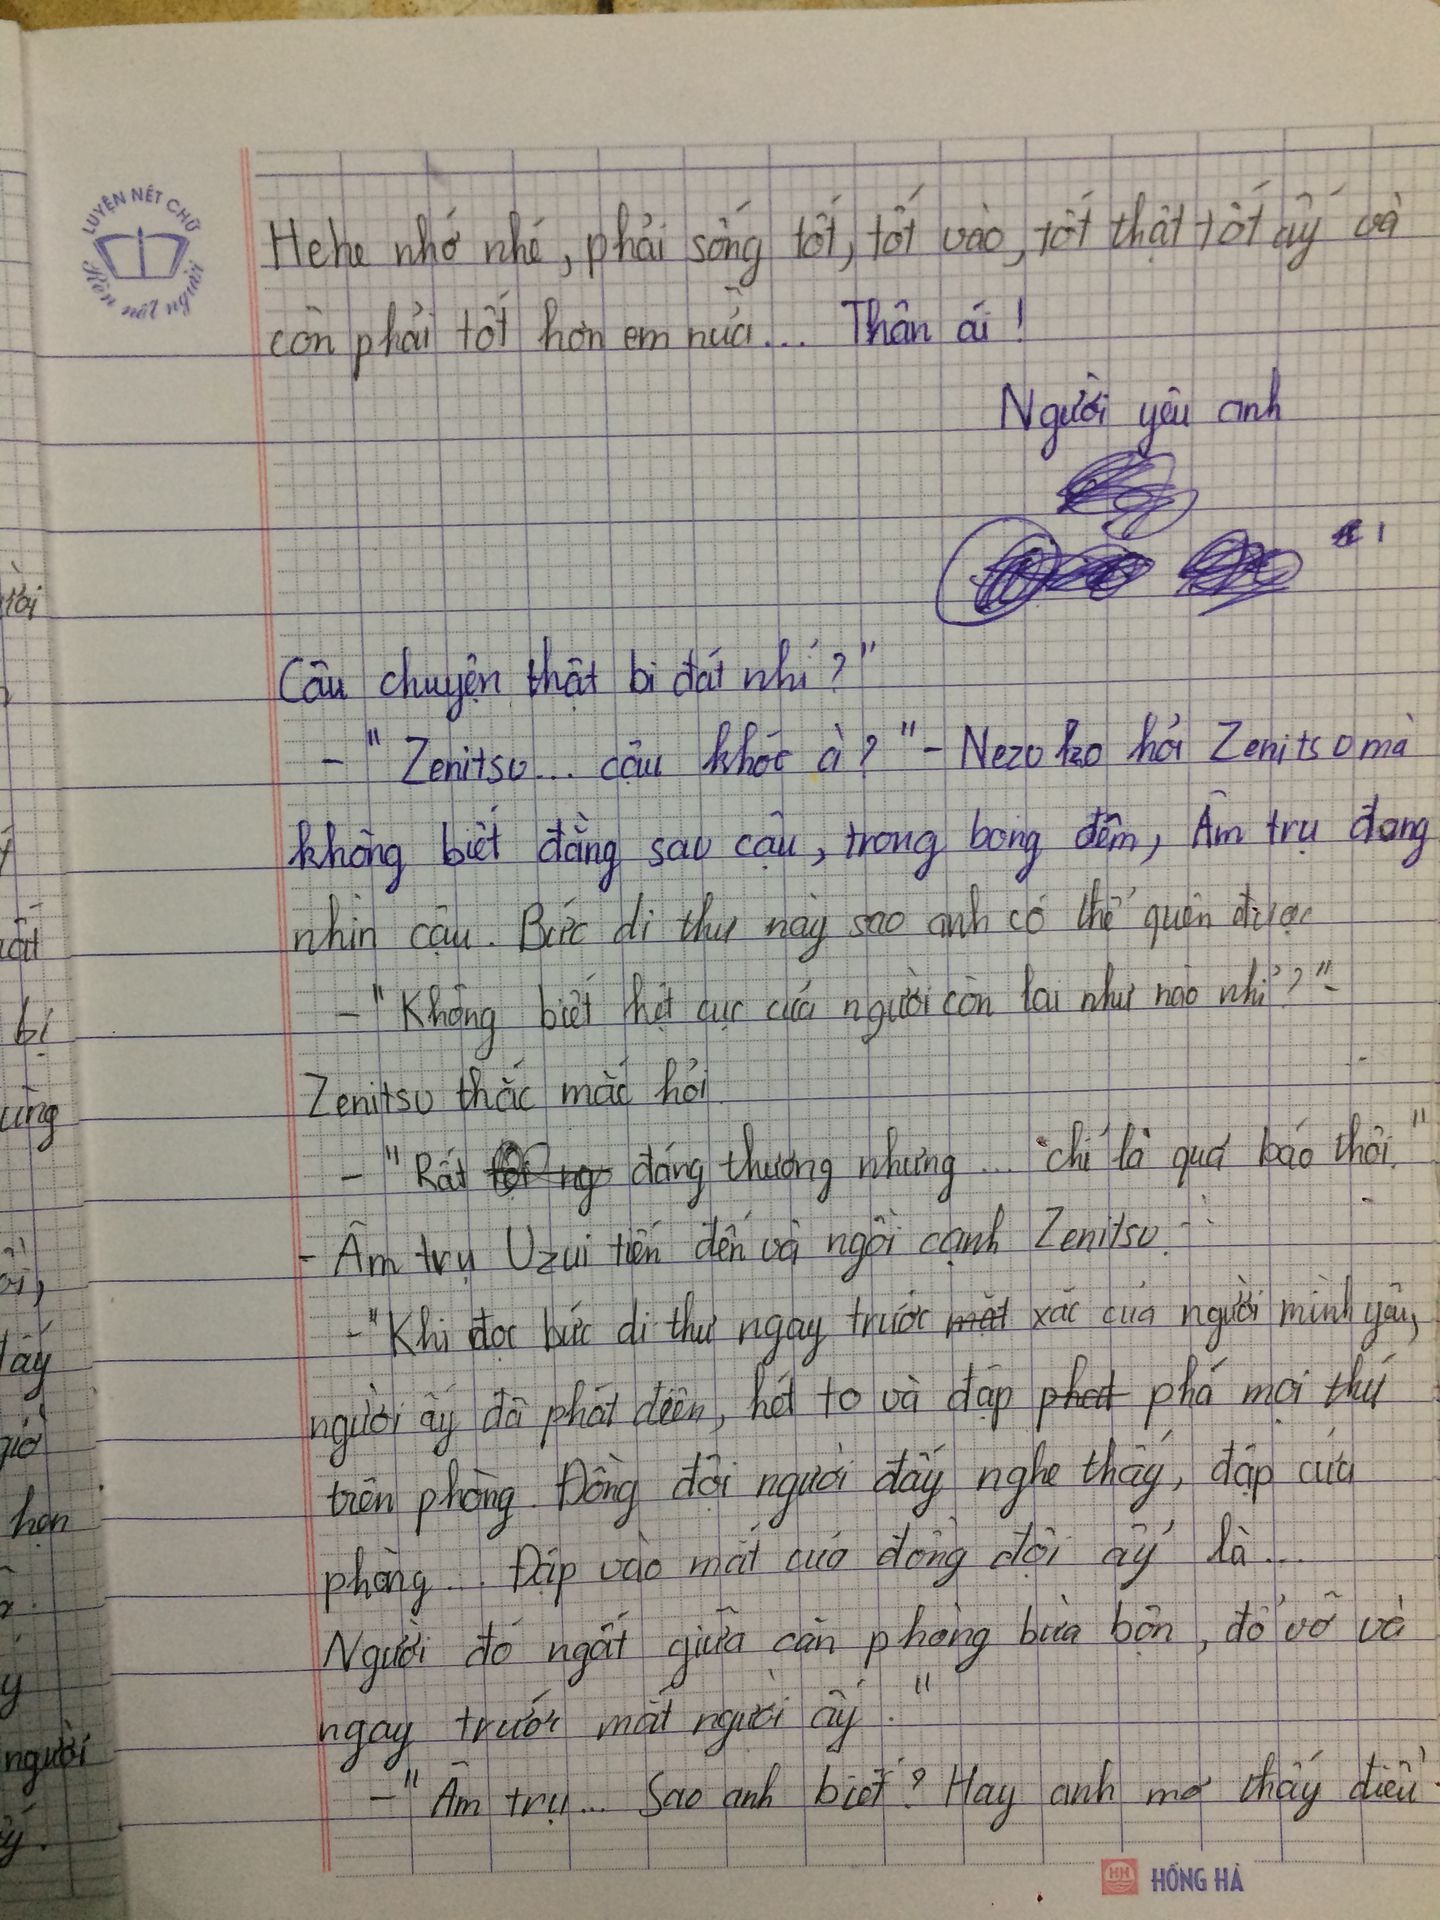 LUYỆN NÉT CHỮ
Rèn nết người
Hehe nhớ nhé, phải sống tốt, tốt vào, tốt thật tốt ấy và
còn phải tốt hơn em nữa... Thân ái!
Người yêu anh
Câu chuyện thật bi đát nhỉ?"
- "Zenitsu... cậu khóc à?" - Nezoko hỏi Zenitso mà
không biết đằng sau cậu, trong bong đêm, Âm trụ đang
nhìn cậu. Bức di thư này sao anh có thể quên được
- "Không biết kết cục của người còn lại như nào nhỉ?" -
Zenitsu thắc mắc hỏi.
- "Rất đáng thương nhưng ... chỉ là quả báo thôi."
- Âm trụ Uzui tiến đến và ngồi cạnh Zenitsu.
- "Khi đọc bức di thư ngay trước mặt xác của người mình yêu,
người ấy đã phát điên, hét to và đập phát phá mọi thứ
trên phòng. Đồng đội người đấy nghe thấy, đập cửa
phòng... Đập vào mắt của đồng đội ấy là...
Người đó ngất giữa căn phòng bừa bộn, đổ vỡ và
ngay trước mắt người ấy."
- "Âm trụ... Sao anh biết? Hay anh mơ thấy điều
HỒNG HÀ
ười
bị
ùng
đấy
giờ
hơn
người